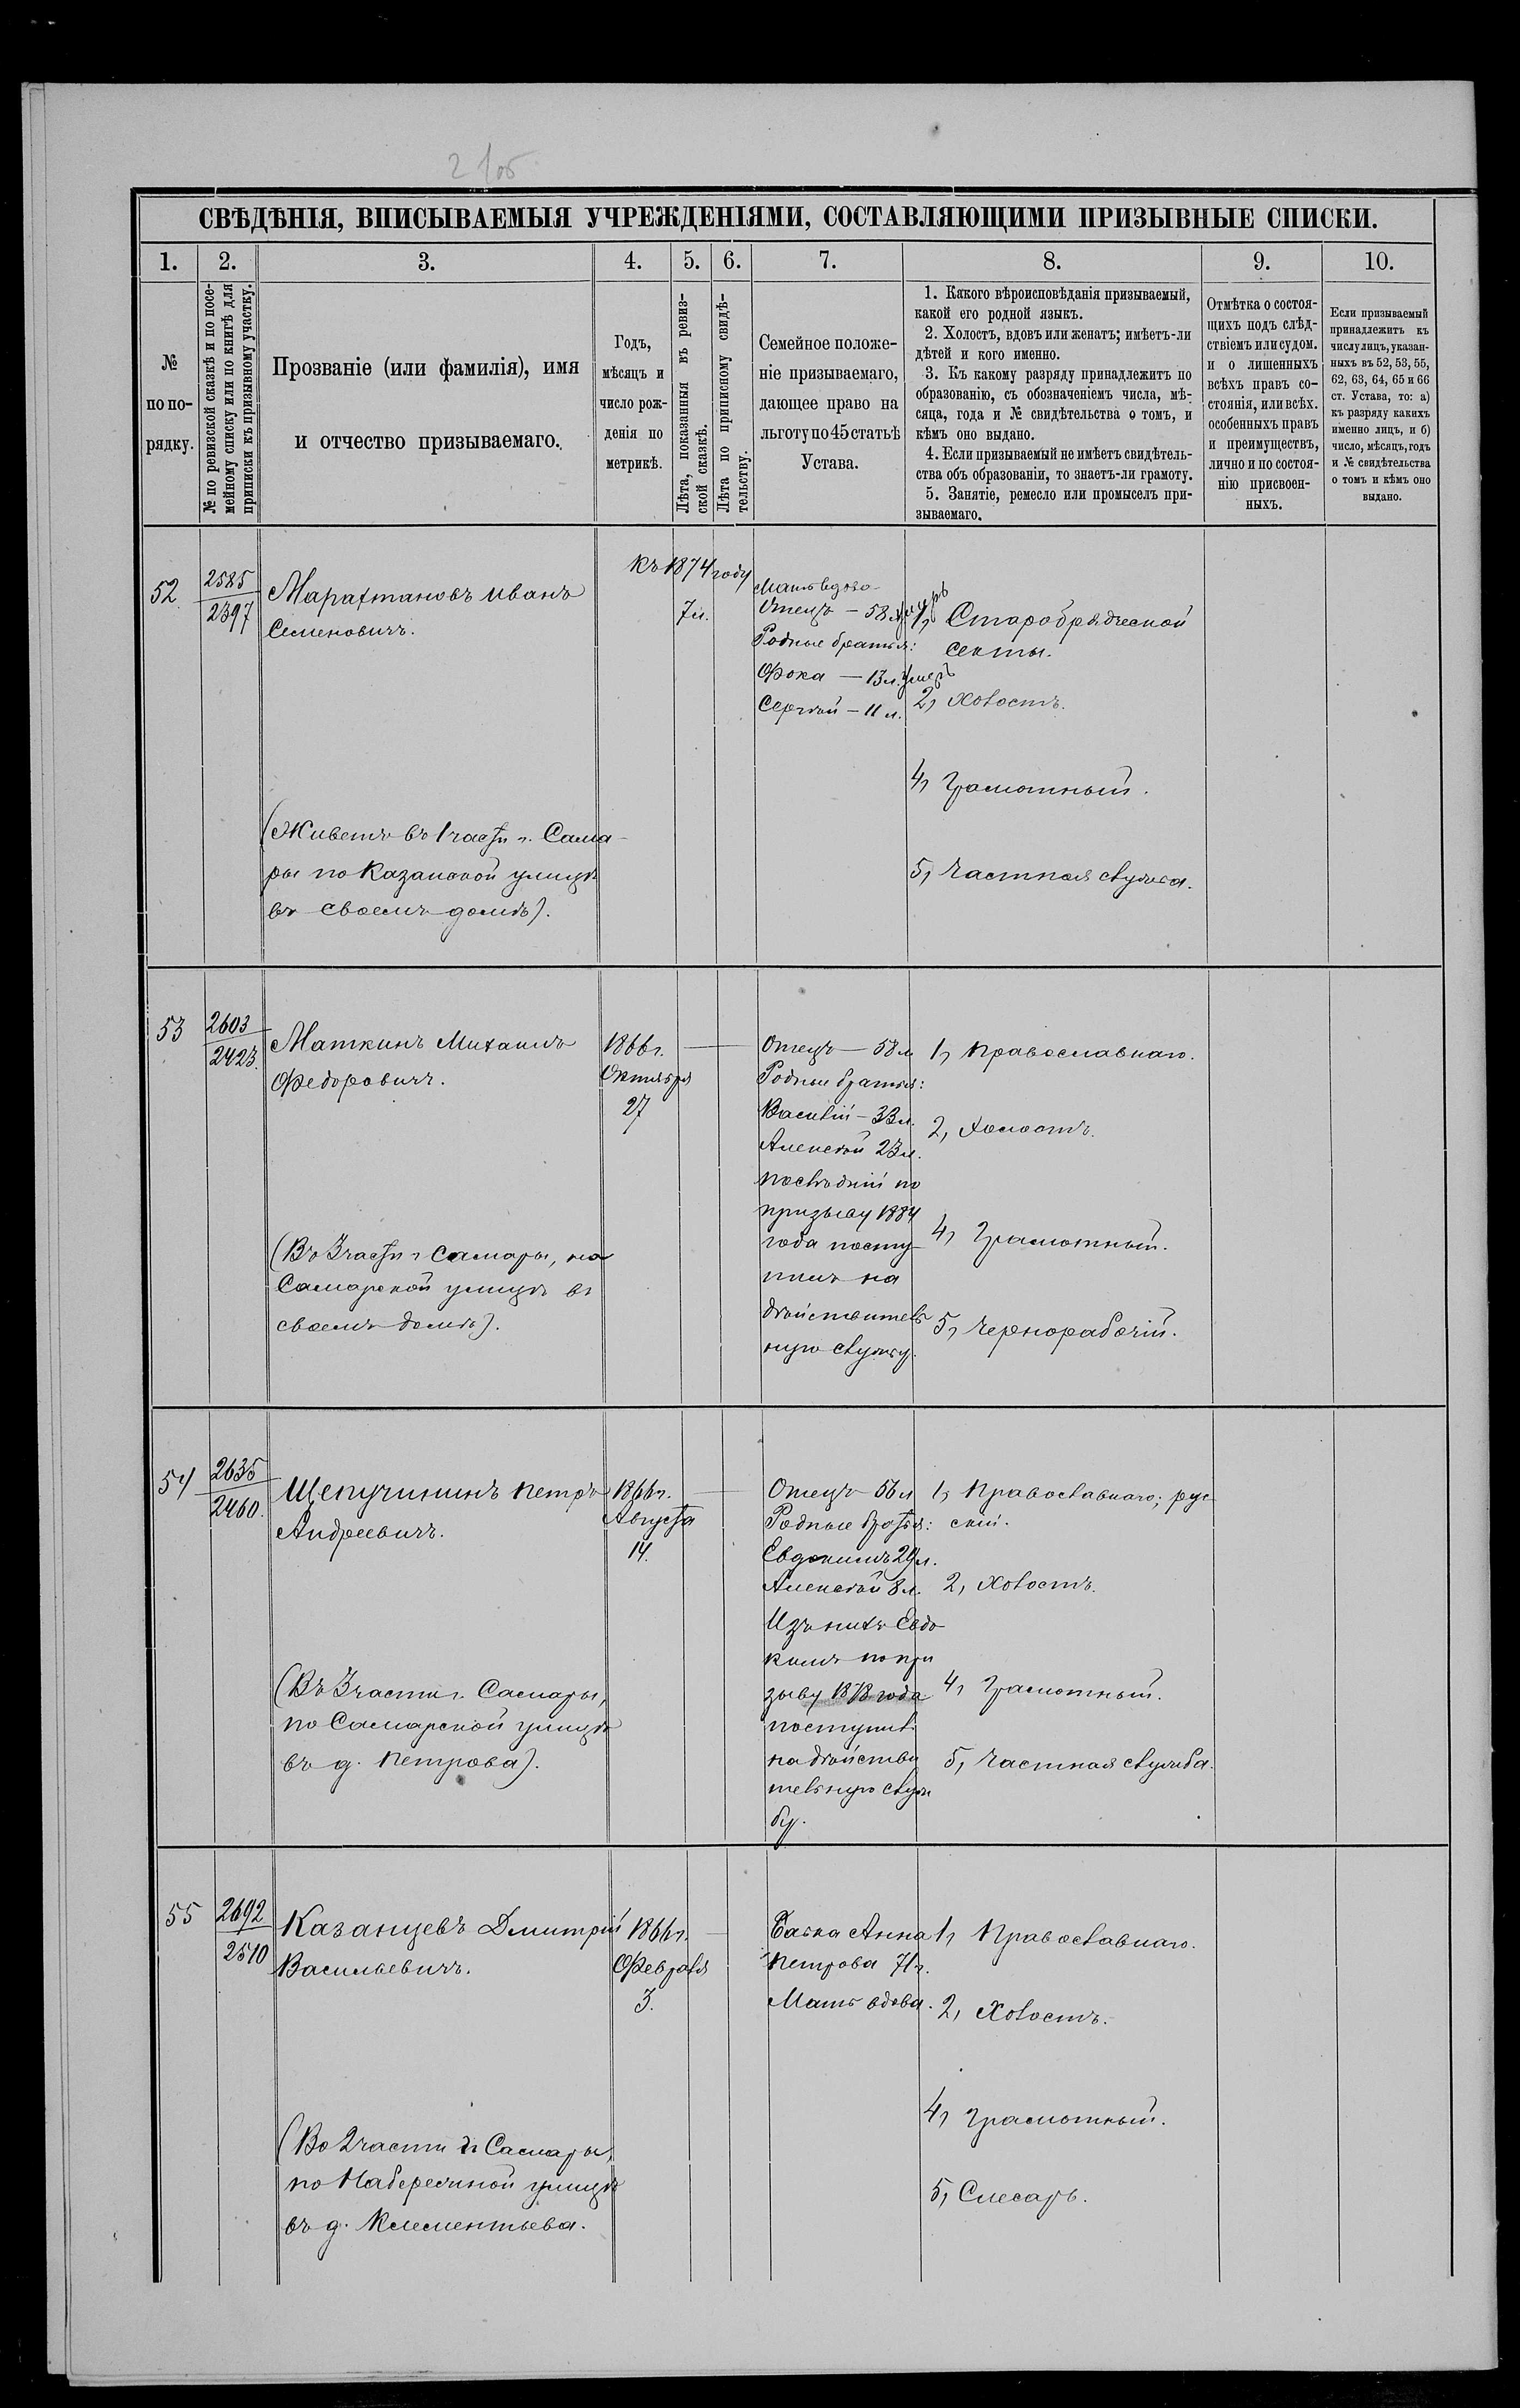 СВѢДѢНІЯ, ВПИСЫВАЕМЫЯ УЧРЕЖДЕНІЯМИ, СОСТАВЛЯЮЩИМИ ПРИЗЫВНЫЕ СПИСКИ.
1. 2. 3. 4. 5. 6. 7. 8. 9. 10.
№
по по-
рядку.
№ по ревизской сказкѣ и по посе-
мейному списку или по книгѣ для
приписки къ призывному участку.
Прозваніе (или фамилія), имя
и отчество призываемаго.
Годъ,
мѣсяцъ и
число рож-
денія по
метрикѣ.
Лѣта, показанныя въ ревиз-
ской сказкѣ.
Лѣта по приписному свидѣ-
тельству.
Семейное положе-
ніе призываемаго,
дающее право на
льготу по 45 статьѣ
Устава.
1. Какого вѣроисповѣданія призываемый,
какой его родной языкъ.
2. Холостъ, вдовъ или женатъ; имѣетъ-ли
дѣтей и кого именно.
3. Къ какому разряду принадлежитъ по
образованію, съ обозначеніемъ числа, мѣ-
сяца, года и № свидѣтельства о томъ, и
кѣмъ оно выдано.
4. Если призываемый не имѣетъ свидѣтель-
ства объ образованіи, то знаетъ-ли грамоту.
5. Занятіе, ремесло или промыселъ при-
зываемаго.
Отмѣтка о состоя-
щихъ подъ слѣд-
ствіемъ или судом.
и о лишенныхъ
всѣхъ правъ со-
стоянія, или всѣх.
особенныхъ правъ
и преимуществъ,
лично и по состоя-
нію присвоен-
ныхъ.
Если призываемый
принадлежитъ къ
числу лицъ, указан-
ныхъ въ 52, 53, 55,
62, 63, 64, 65 и 66
ст. Устава, то: а)
къ разряду какихъ
именно лицъ, и б)
число, мѣсяцъ, годъ
и № свидѣтельства
о томъ и кѣмъ оно
выдано.
52
2585
2397
Марахтановъ Иванъ
Семеновичъ.
(Живетъ въ 1 части г. Сама-
ры по Казанской улицѣ
въ своемъ домѣ).
Къ 1874 году
7 л.
Мать вдова
Отецъ — 58 л. умеръ
Родные братья:
Фока — 13 л. умеръ
Сергѣй — 11 л.
1, Старобрядческой
секты.
2, Холостъ.
4, Грамотный.
5, Частная служба.
53
2603
2423.
Маткинъ Михаилъ
Федоровичъ.
(Въ 3 части г. Самары, на
Самарской улицѣ въ
своемъ домѣ).
1866 г.
Октября
27
Отецъ — 58 л
Родные братья:
Василій — 33 л.
Алексѣй 23 л.
послѣдній по
призыву 1884
года посту-
пилъ на
дѣйствитель
ную службу.
1, Православнаго.
2, Холостъ.
4, Грамотный.
5, Чернорабочій.
54
2635
2460.
Щепучининъ Петръ
Андреевичъ.
(Въ 3 части г. Самары,
по Самарской улицѣ
въ д. Петрова).
1866 г.
Августа
14.
Отецъ — 56 л
Родные братья:
Евдокимъ 29 л.
Алексѣй 8 л.
Изъ нихъ Евдо
кимъ по при
зыву 1878 года
поступилъ
на дѣйстви
тельную служ
бу.
1, Православнаго; рус
скій.
2, Холостъ.
4, Грамотный.
5, Частная служба.
55
2692
2510
Казанцевъ Дмитрій
Васильевичъ.
(Во 2 части г. Самары,
по Набережной улицѣ
въ д. Клементьева.
1866 г.
Февраля
3.
Бабка Анна
Петрова 71 г.
Мать вдова.
1, Православнаго.
2, Холостъ.
4, Грамотный.
5, Слесарь.